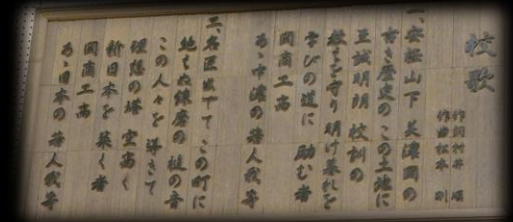 校歌
作詞 村井 順
作曲 松本 剛
一、安桜山下 美濃関の
古き歴史の この土地に
至誠明朗 校訓の
教を守り 明け暮れを
学びの道に 励む者
関商工高
あゝ中濃の若人我等
二、名匠出でて この町に
絶えぬ錬磨の 槌の音
この人々を 導きて
理想の塔 空高く
新日本を 築く者
関商工高
あゝ日本の若人我等